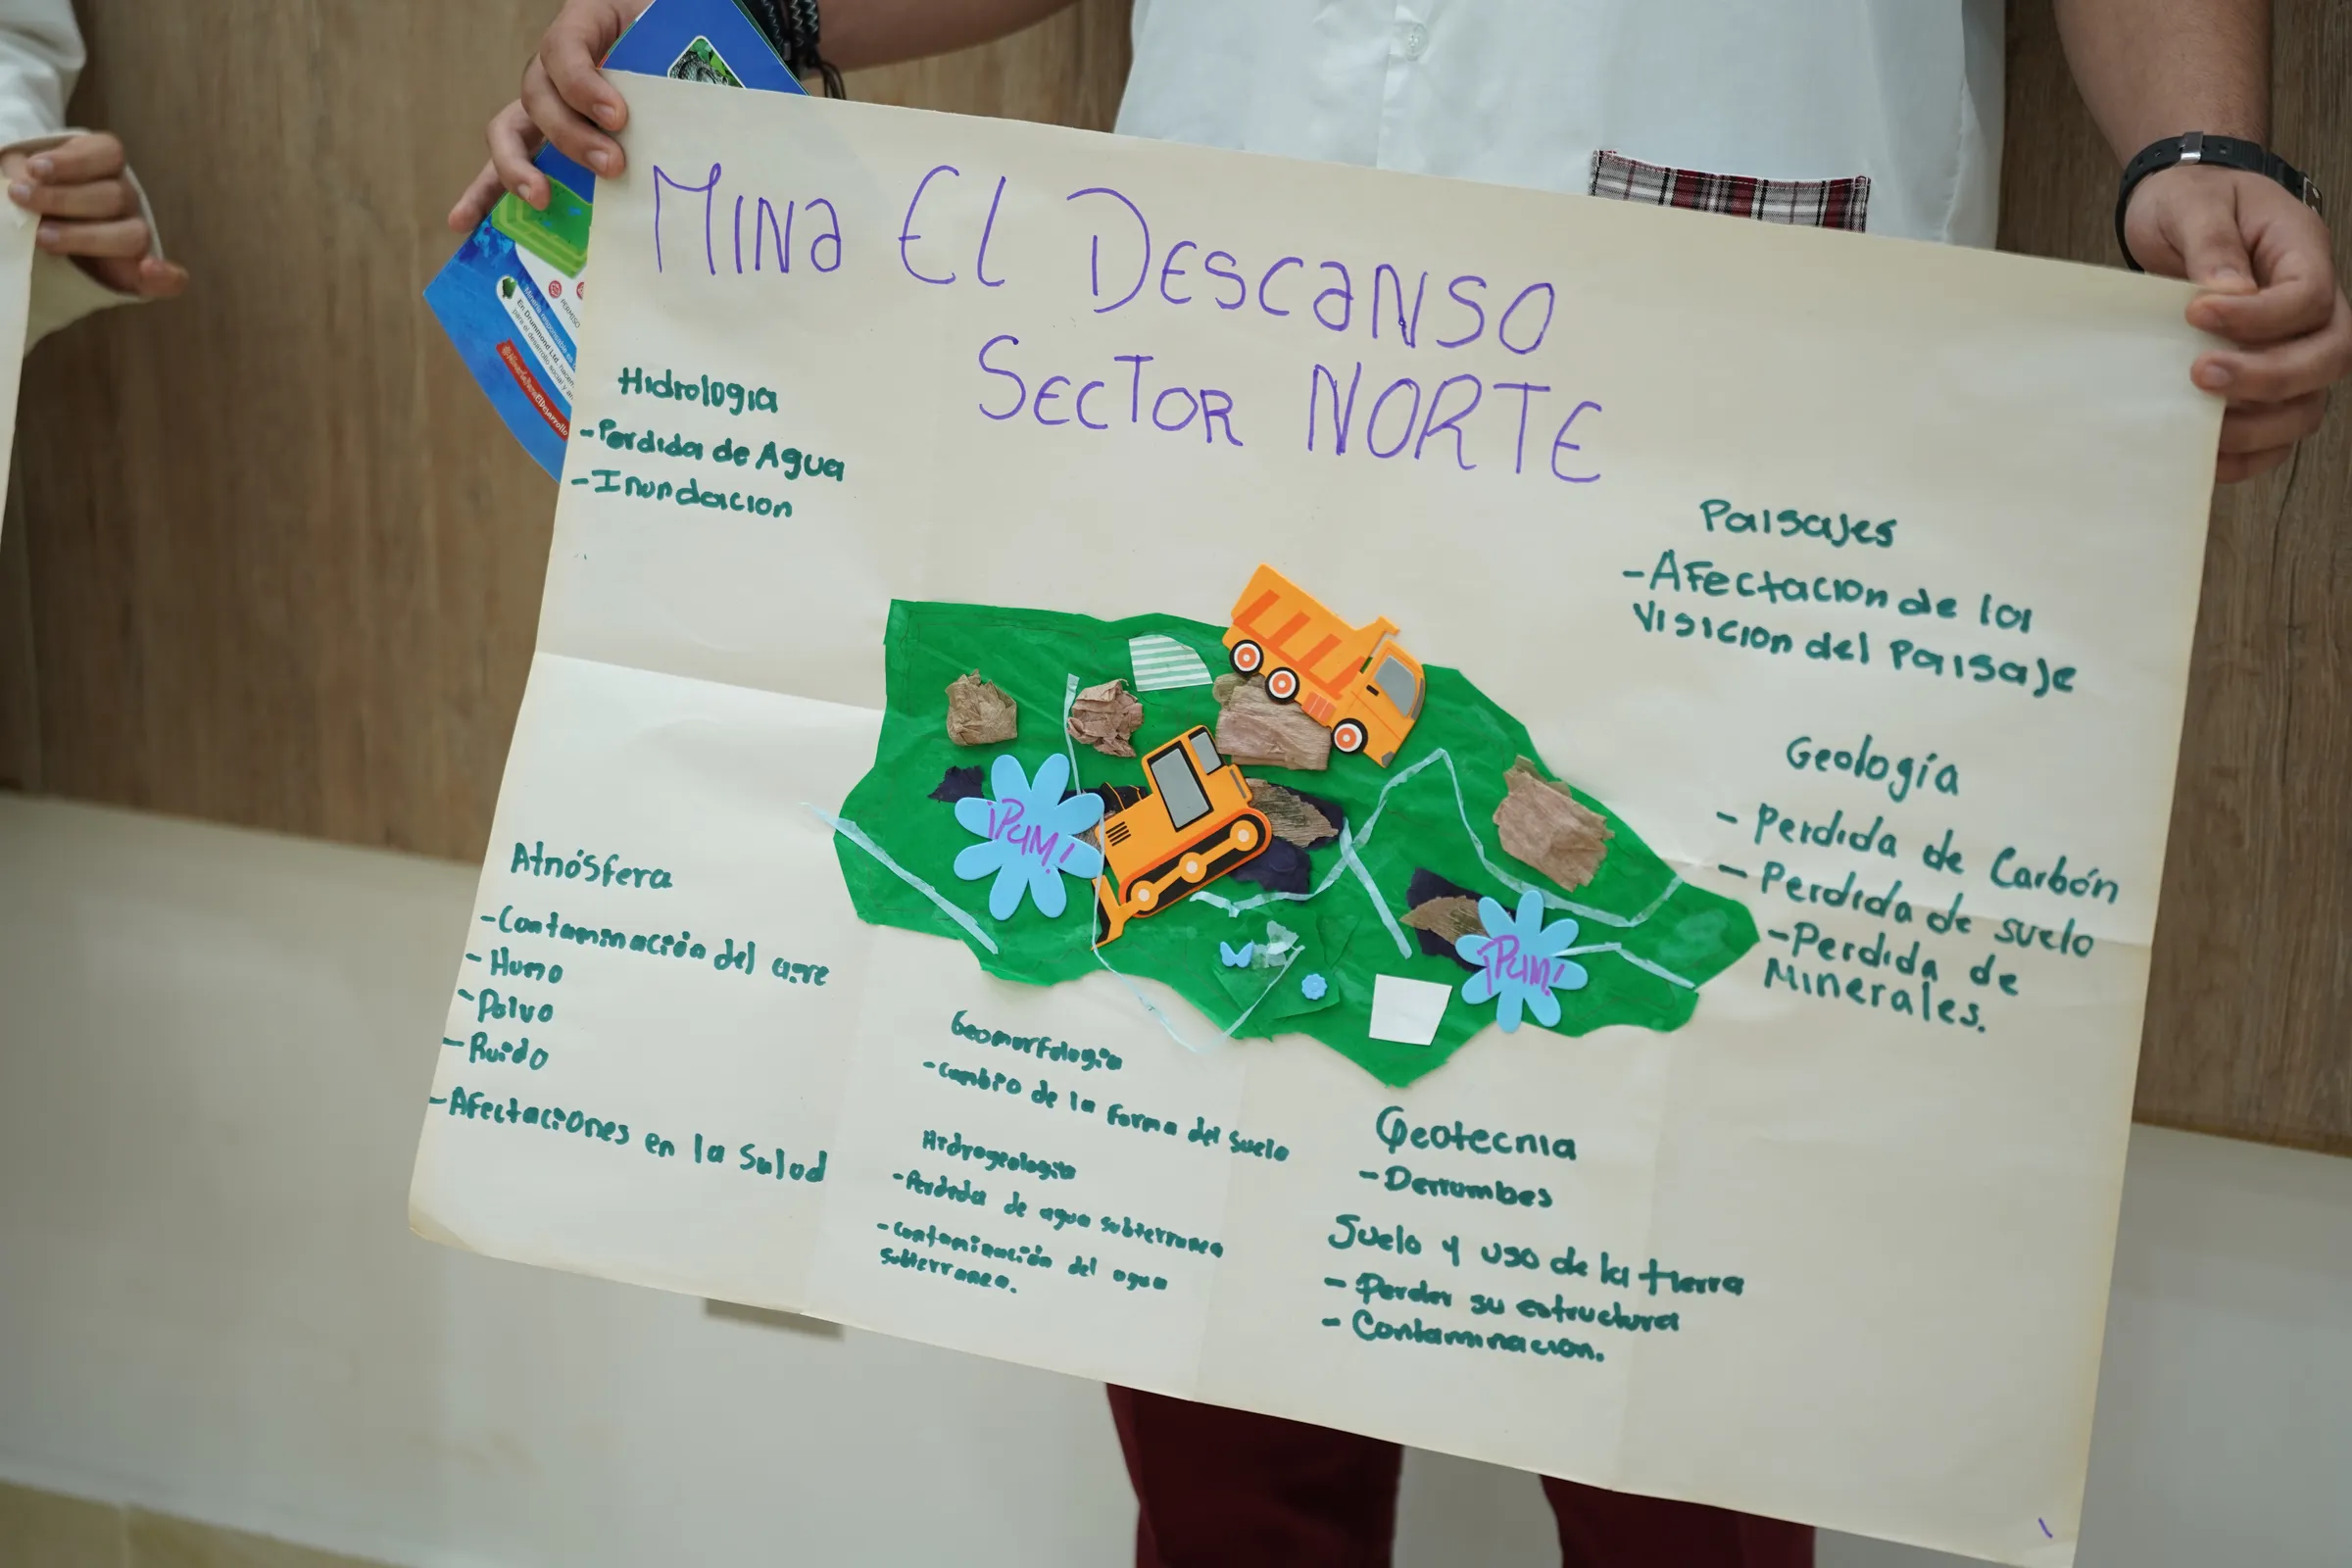 MINA El DESCANSO
SECTOR NORTE
Hidrologia
-Perdida de Agua
-Inundacion
Paisajes
-Afectacion de los
Visicion del Paisaje
Geología
- Perdida de Carbón
- Perdida de suelo
-Perdida de
Minerales.
¡PUM!
¡PUM!
Atmósfera
-Contaminación del aire
-Humo
-Polvo
-Ruido
-Afectaciones en la Salud
Geomorfologia
-Cambio de la forma del suelo
Hidrogeologia
-Perdida de agua subterranea
-Contaminación del agua
subterranea.
Geotecnia
-Derrumbes
Suelo y uso de la tierra
- Perder su estructura
- Contaminacion.
PERMISO
Minería
En Drummond Ltd. hacem
para el desarrollo social y